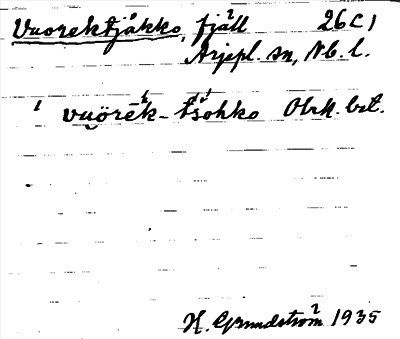 Vuorektjåkko, fjäll 26C1
Arjepl. sn, Nb. l.
vuörēk-tšohko Obekt. bet.
H. Grundström 1935